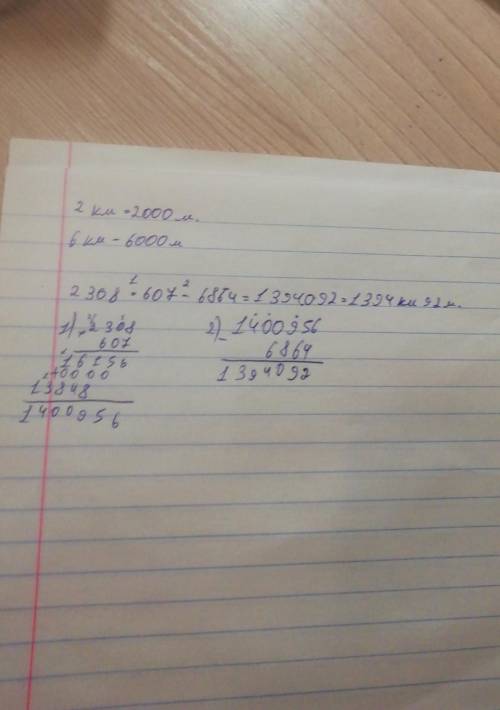 2 км = 2000 м.
6 км - 6000 м
2308 · 607 - 6864 = 1394092 = 1394 км 92 м.
1) 2308
607
16156
0000
13848
1400956
2) 1400956
- 6864
1394092